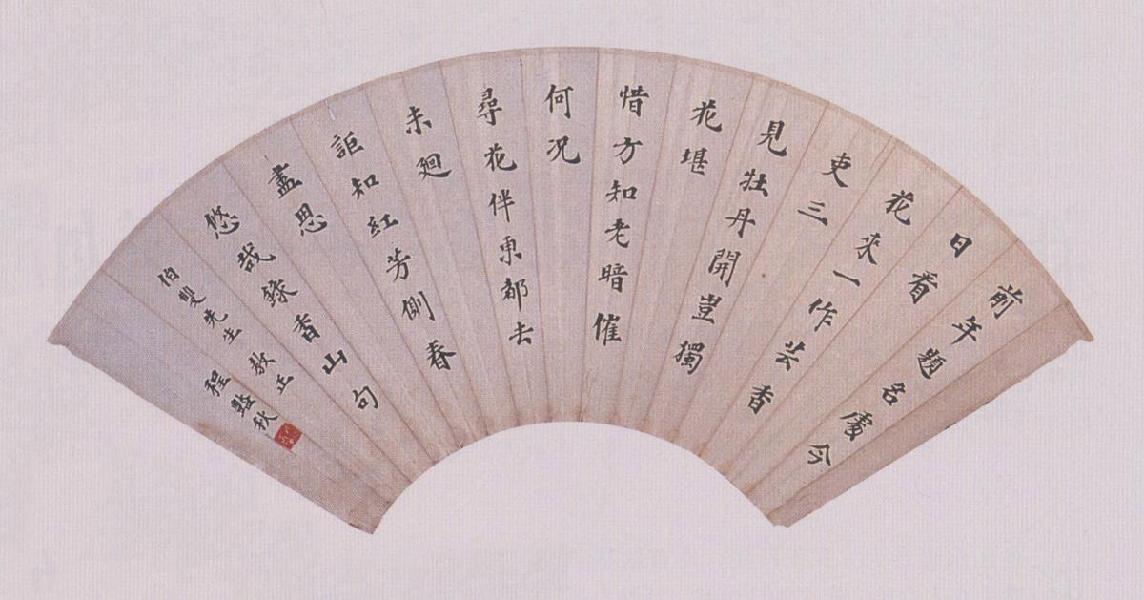 前年題名處今
日看
花來一作芸香
吏三
見牡丹開豈獨
花堪
惜方知老暗催
何况
尋花伴東都去
未廻
詎知紅芳側春
盡思
悠哉錄香山句
伯先生 教正
程秋